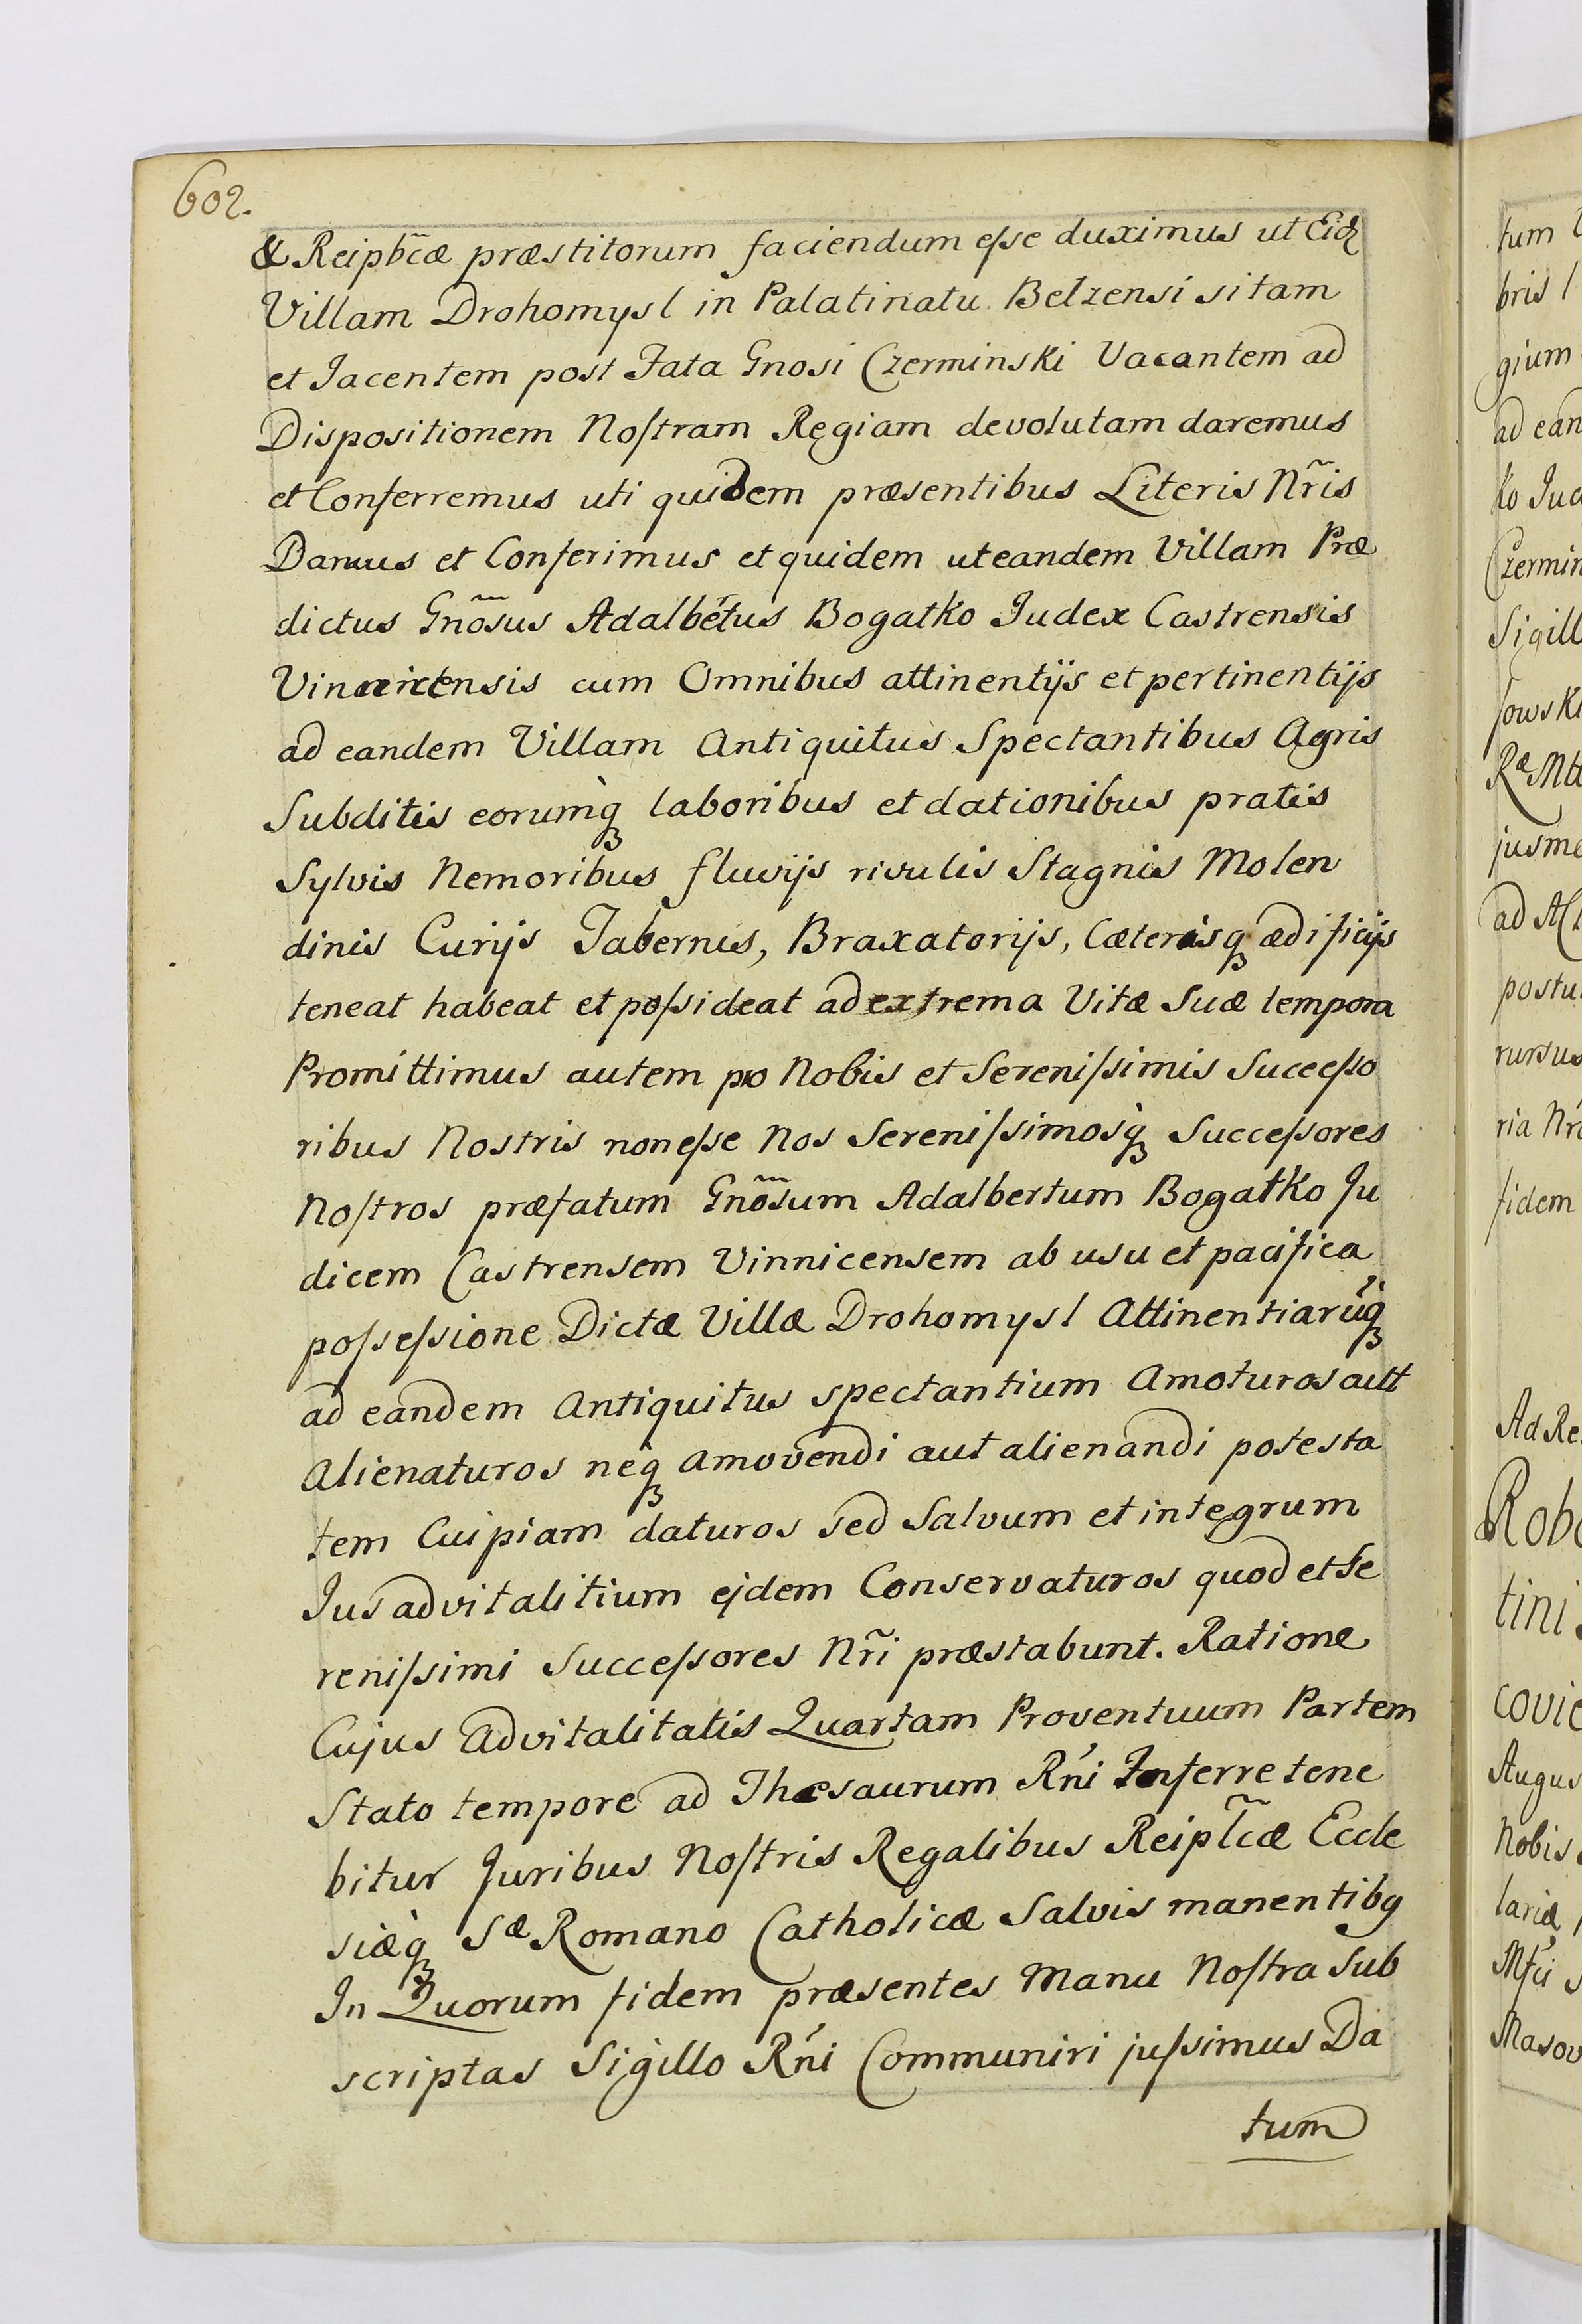 602.
& Reipb̃cæ præstitorum faciendum eſse duximus ut Eidꝫ
Villam Drohomysl in Palatinatu Belzensi sitam
et Jacentem post Fata Gnosi Czerminski Vacantem ad
Dispositionem Noſtram Regiam devolutam daremus
et Conferremus uti quidem præsentibus Literis Nr̃is
Damus et Conferimus et quidem ut eandem Villam Præ
dictus Gnõsus Adalbe͂tus Bogatko Judex Castrensis
cum Omnibus attinentijs et pertinentijs
ad eandem Villam Antiquitus Spectantibus Agris
Subditis eorumq̀ꝫ laboribus et dationibus pratis
Sylvis Nemoribus fluvijs rivulis Stagnis Molen
dinis Curijs Tabernis, Braxatorijs, Cæterisqꝫ ædificijs
teneat habeat et poſsideat ad extrema Vitæ Suæ tempora
Promittimus autem pro Nobis et Sereniſsimis Succeſso
ribus Nostris non eſse Nos Sereniſsimosq̀ꝫ Succeſsores
Noſtros præfatum Gnõsum Adalbertum Bogatko Ju
dicem Castrensem Vinnicensem ab usu et pacifica
poſseſsione Dictæ Villæ Drohomysl Attinentiarũq̀ꝫ
ad eandem Antiquitus spectantium Amoturos autt
Alienaturos neq̀ꝫ amovendi aut alienandi potesta
tem Cuipiam daturos sed Salvum et integrum
Jus advitalitium ejdem Conservaturos quod et Se
reniſsimi Succeſsores Nr̃i præstabunt. Ratione
Cujus Advitalitatis Quartam Proventuum Partem
Stato tempore ad Thæsaurum Rńi Inferre tene
bitur Juribus Noſtris Regalibus Reipl̃cæ Eccle
siæq̀ꝫ Sæ Romano Catholicæ Salvis manentibꝰ
In Quorum fidem præsentes Manu Noſtra Sub
scriptas Sigillo Rńi Communiri juſsimus Da
tum
tum
bris
gium
ad ean
ko Jud
Czermin
Sigill
sowski
Ræ Mtt
jusmo
ad
postu
rursus
ria
fidem
Ad Re
Robo
tini
covie
Augus
Nobis
lariæ
Mfci
Masov